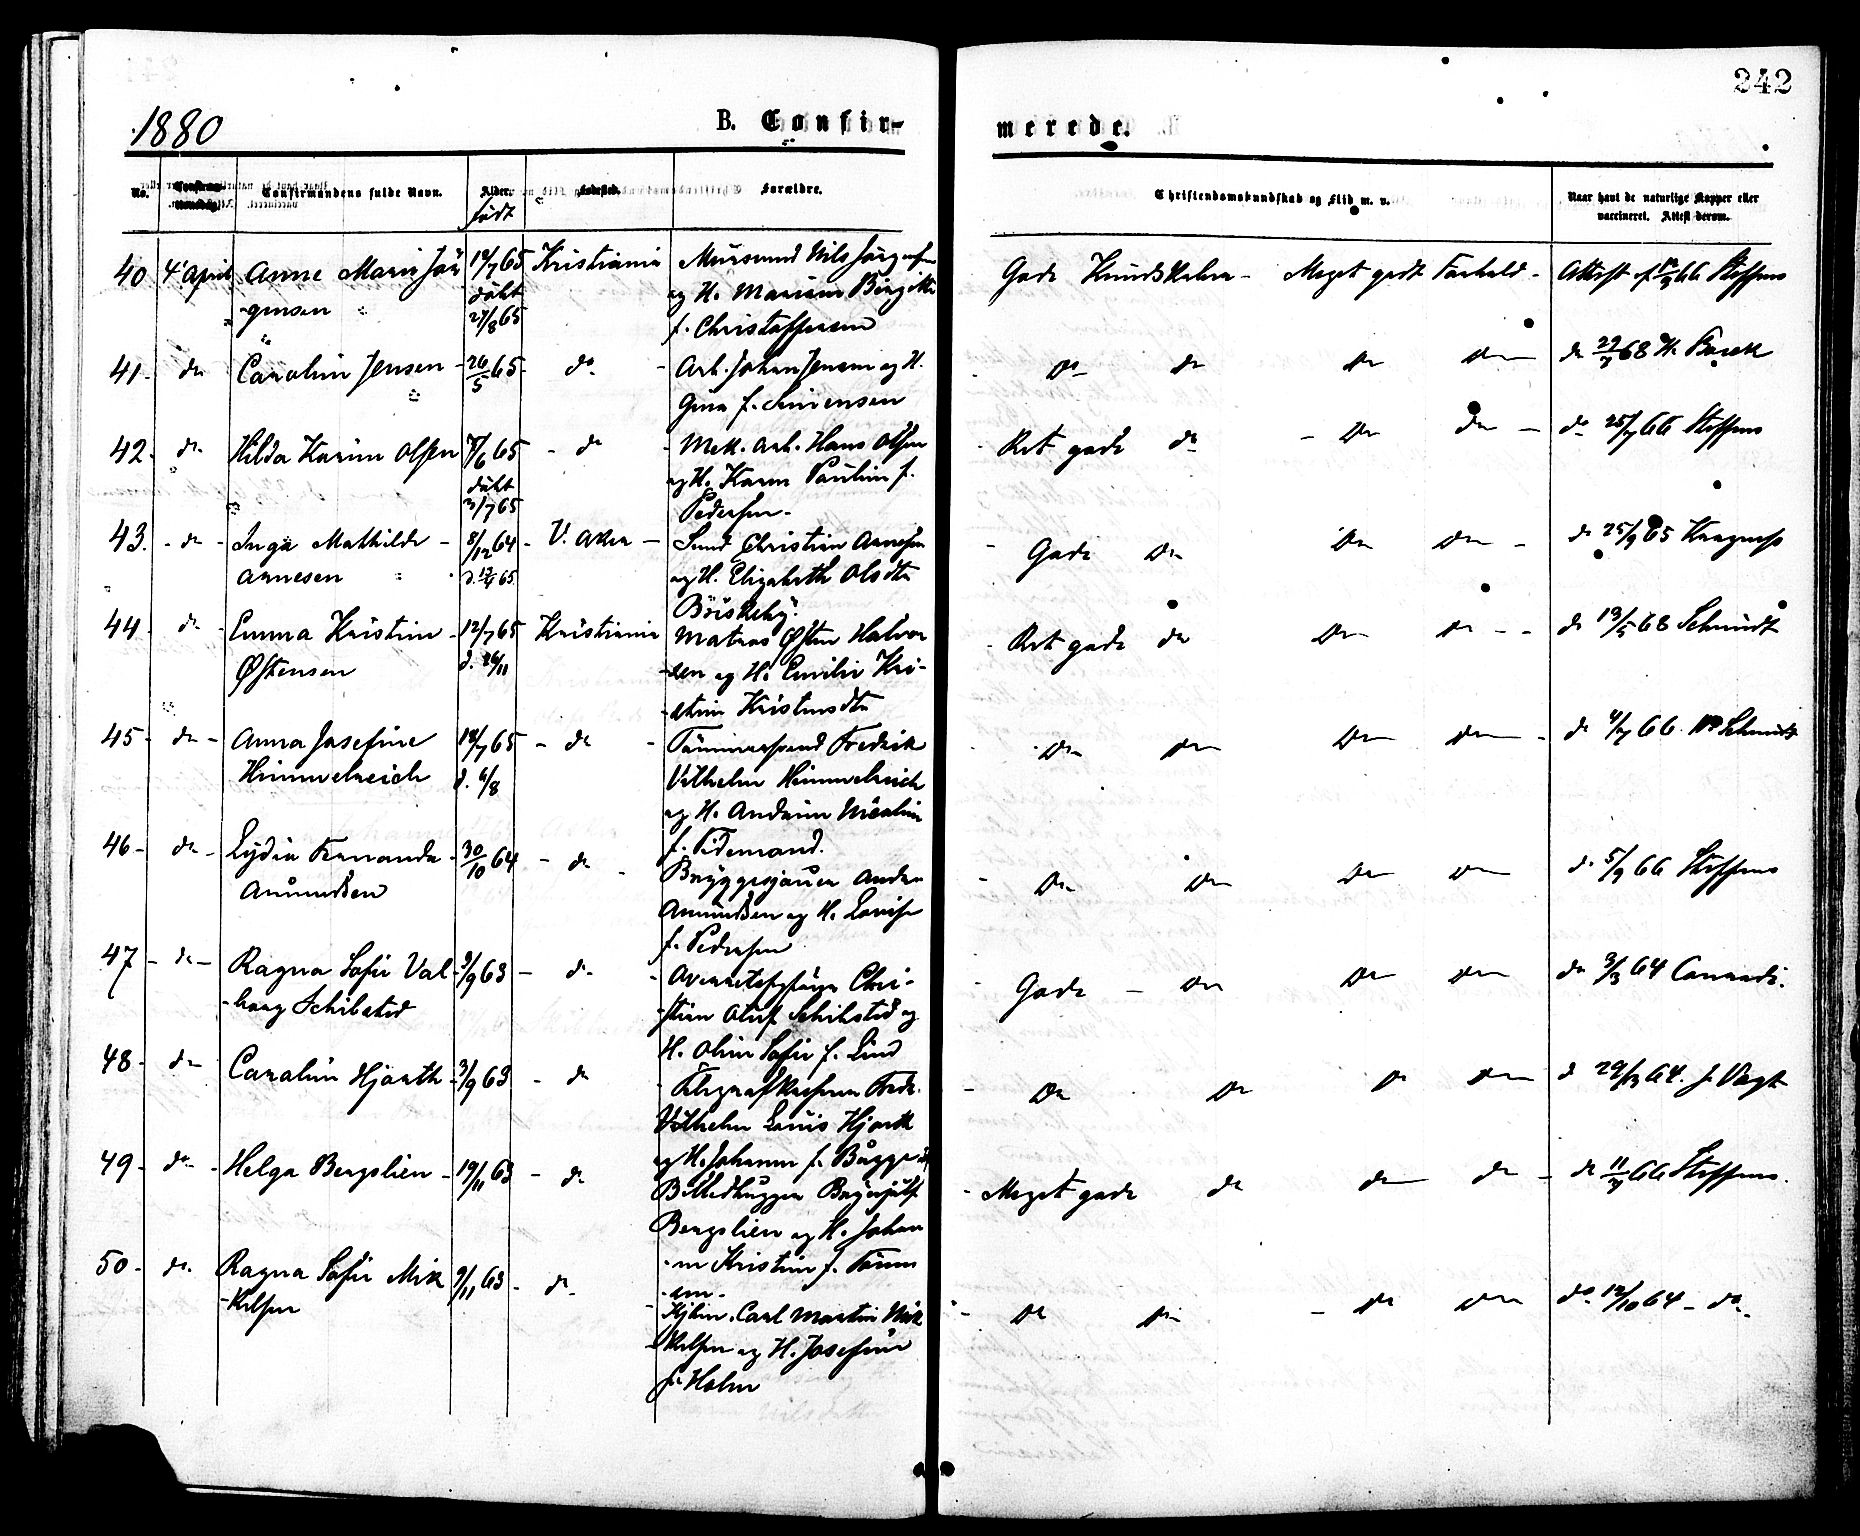 242
1880
B. Confir-
merede.
No.
Confirmandens fulde Navn.
Alder.
født
Fødested.
Forældre.
Christendomskundskab og Flid m. v.
Naar havt de naturlige Kopper eller
vaccineret. Attest derom.
40 4' April Anne Marie Jør 19/7 65 Kristiania Murersvend Nils Jørgensen
-gensen døbt og H. Mariane Birgitte
27/8 65 f. Christoffersen
Gode Kundskaber - Meget godt Forhold - Attest f. 66 Steffens
41 - do Caroline Jensen - 26/5 65 - do - Arb. Johan Jensen og H.
Gina f. Sørensen
do do do do do 68 H. Borck
42 - do Hilda Karine Olsen 65 - do - Mek. Arb. Hans Olsen
døbt og H. Karen Pauline f.
3/7 65 Pedersen -
- Ret gode do - do do - do 25/7 66 Steffens
43. - do - Inga Mathilde - 8/12 64 - V. Aker - Smed Christian Arnesen
Arnesen og H. Elizabeth Olsdtr
Briskeby.
- Gode do do do - do 25/9 65
44 - do - Emma Kristine - 12/7 65 Kristiania Matros Østen Halvor
Østensen d. 26/11 -sen og H. Emilie Kri-
-stine Kristensdtr
- Ret gode do do do - - do 19/5 68 Schmidt
45 - do - Anna Josefine 18/7 65 - do - Tømmermand Fredrik
Himmelreich d. 6/8 Vilhelm Himmelreich
og H. Andrine Nicoline
f. Tidemand.
do do do do - do 4/7 66 Schmidt
46 - do - Lydia Fernanda - 30/10 64 - do - Bryggesjauer Anders
Amundsen Amundsen og H. Lovise
f. Pedersen
- do do do do do 5/9 66 Steffens
47 - do - Ragna Sofie Val - 3/9 63 - do - Overretssagfører Chri-
-borg Schibsted -stian Oluf Schibsted og
H. Oline Sofie f. Lind
- Gode - do do do do 3/3 64 Conradi.
48 - do Caroline Hjorth - 3/9 63 - do - Telegrafkasserer Fredr.
Vilhelm Louis Hjorth
og H. Johanne f. Bugge
- do do do do do 64. J. Vogt
49 - do - Helga Bergslien - 19/11 63 - do Billedhugger Brynjulf
Bergslien og H. Johan
-ne Kristine f. Tønne
-sen -
- Meget gode do do do - do 66 Steffens.
50 - do. Ragna Sofie Mik 9/11 63 - do - - Kjbm. Carl Martin Mik
-kelsen -kelsen og H. Josefine
f. Holm
- do do - do do do 12/10 64 - do -